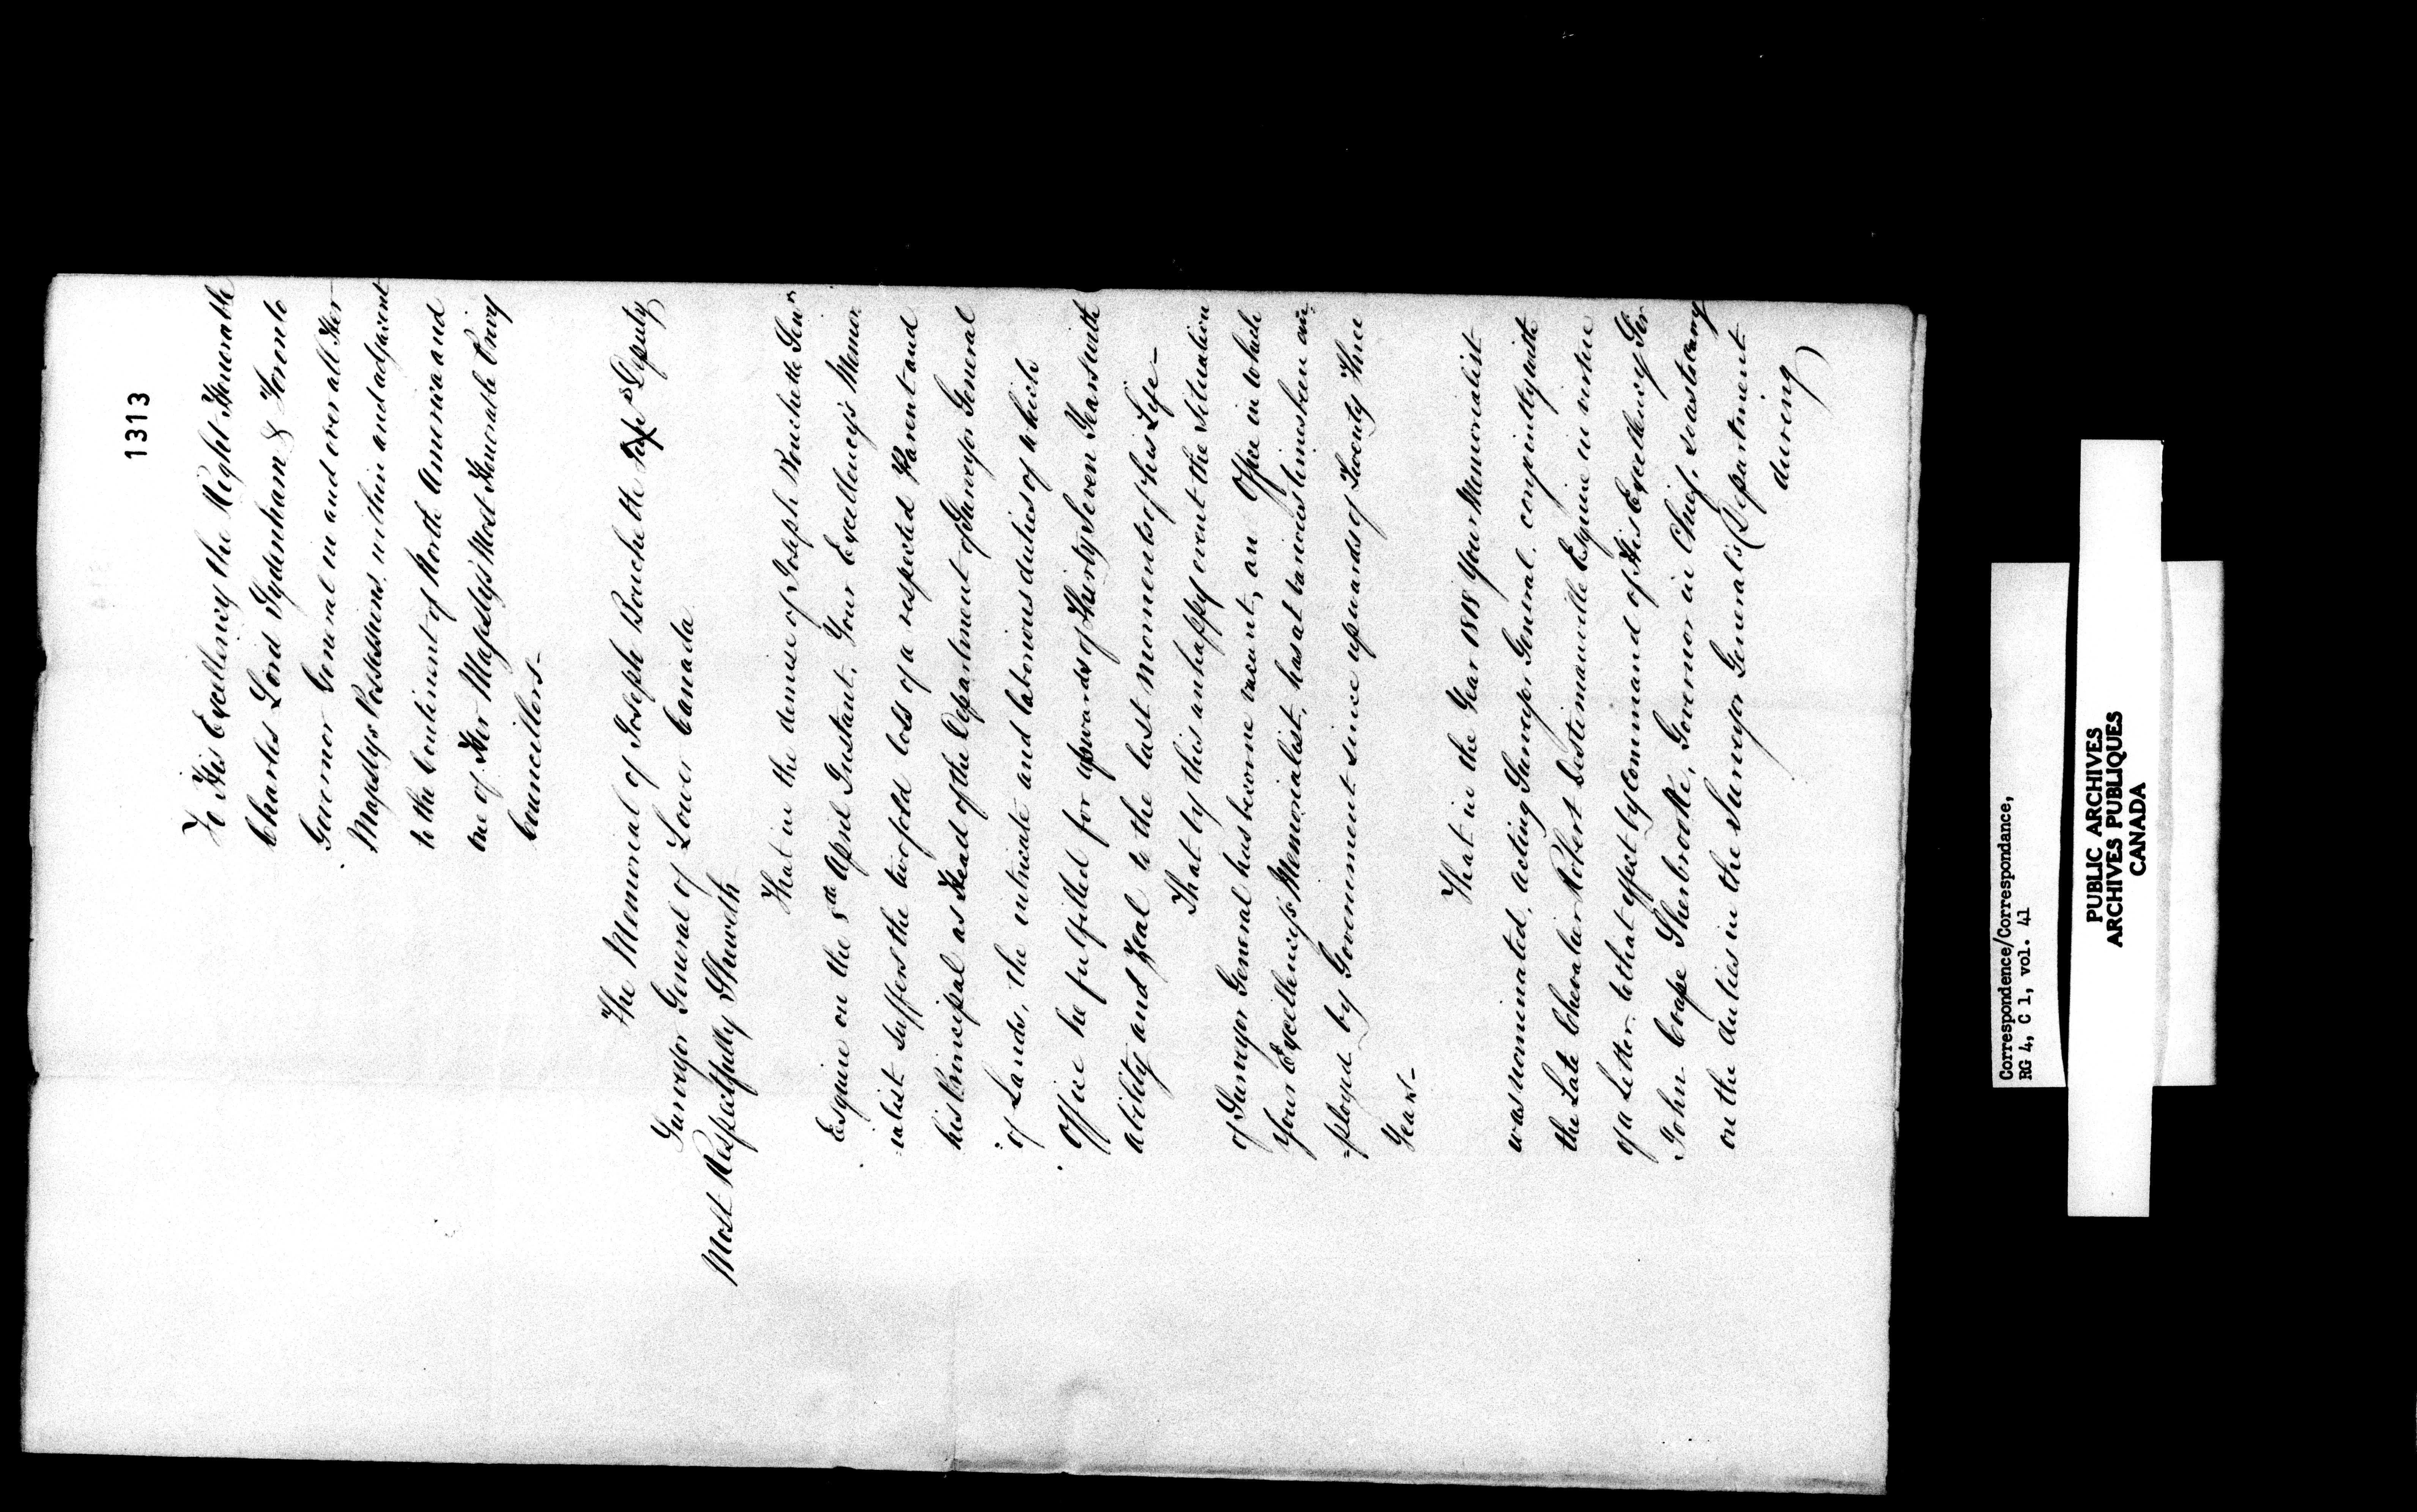 1313
To His Excellency the Right Honorable
Charles Lord Sydenham & Toronto
Governor General in and over all Her
Majestys Possessions within and adjacent
to the Continent of North America and
one of Her Majesty's Most Honorable Privy
Councillors-
The Memorial of Joseph Bouchette Deputy
Surveyor General of Lower Canada
Most Respectfully Sheweth
That in the demise of Joseph Bouchette Senr
Esquire on the 8th April Instant, Your Excellency's Memor
ialist suffers the twofold loss of a respected Parent and
his Principal as Head of the Department of Surveyor General
of Lands, the intricate and laborious duties of which
Office he fulfilled for upwards of Thirty Seven Years with
ability and Zeal to the last moments of his Life-
That by this unhappy event the situation
of Surveyor General has become vacant, an Office in which
Your Excellency's Memorialist, has at various times been em
=ployed by Government since upwards of Twenty Three
Years-
That in the Year 1818 Your Memorialist
was nominated, acting Surveyor General, conjointly with
the Late Chevalier Robert Destimauville Esquire in virtue
of a Letter to that effect by Command of His Excellency Sir
John Coape Sherbrooke, Governor in Chief, so as to carry
on the duties in the Surveyor General's Department
during
Correspondence/Correspondance,
RG 4, C 1, vol. 41
PUBLIC ARCHIVES
ARCHIVES PUBLIQUES
CANADA